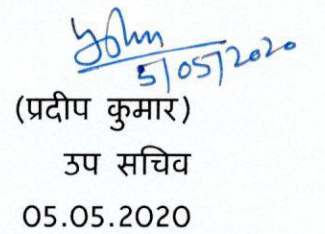 5/05/2020
(प्रदीप कुमार)
उप सचिव
05.05.2020